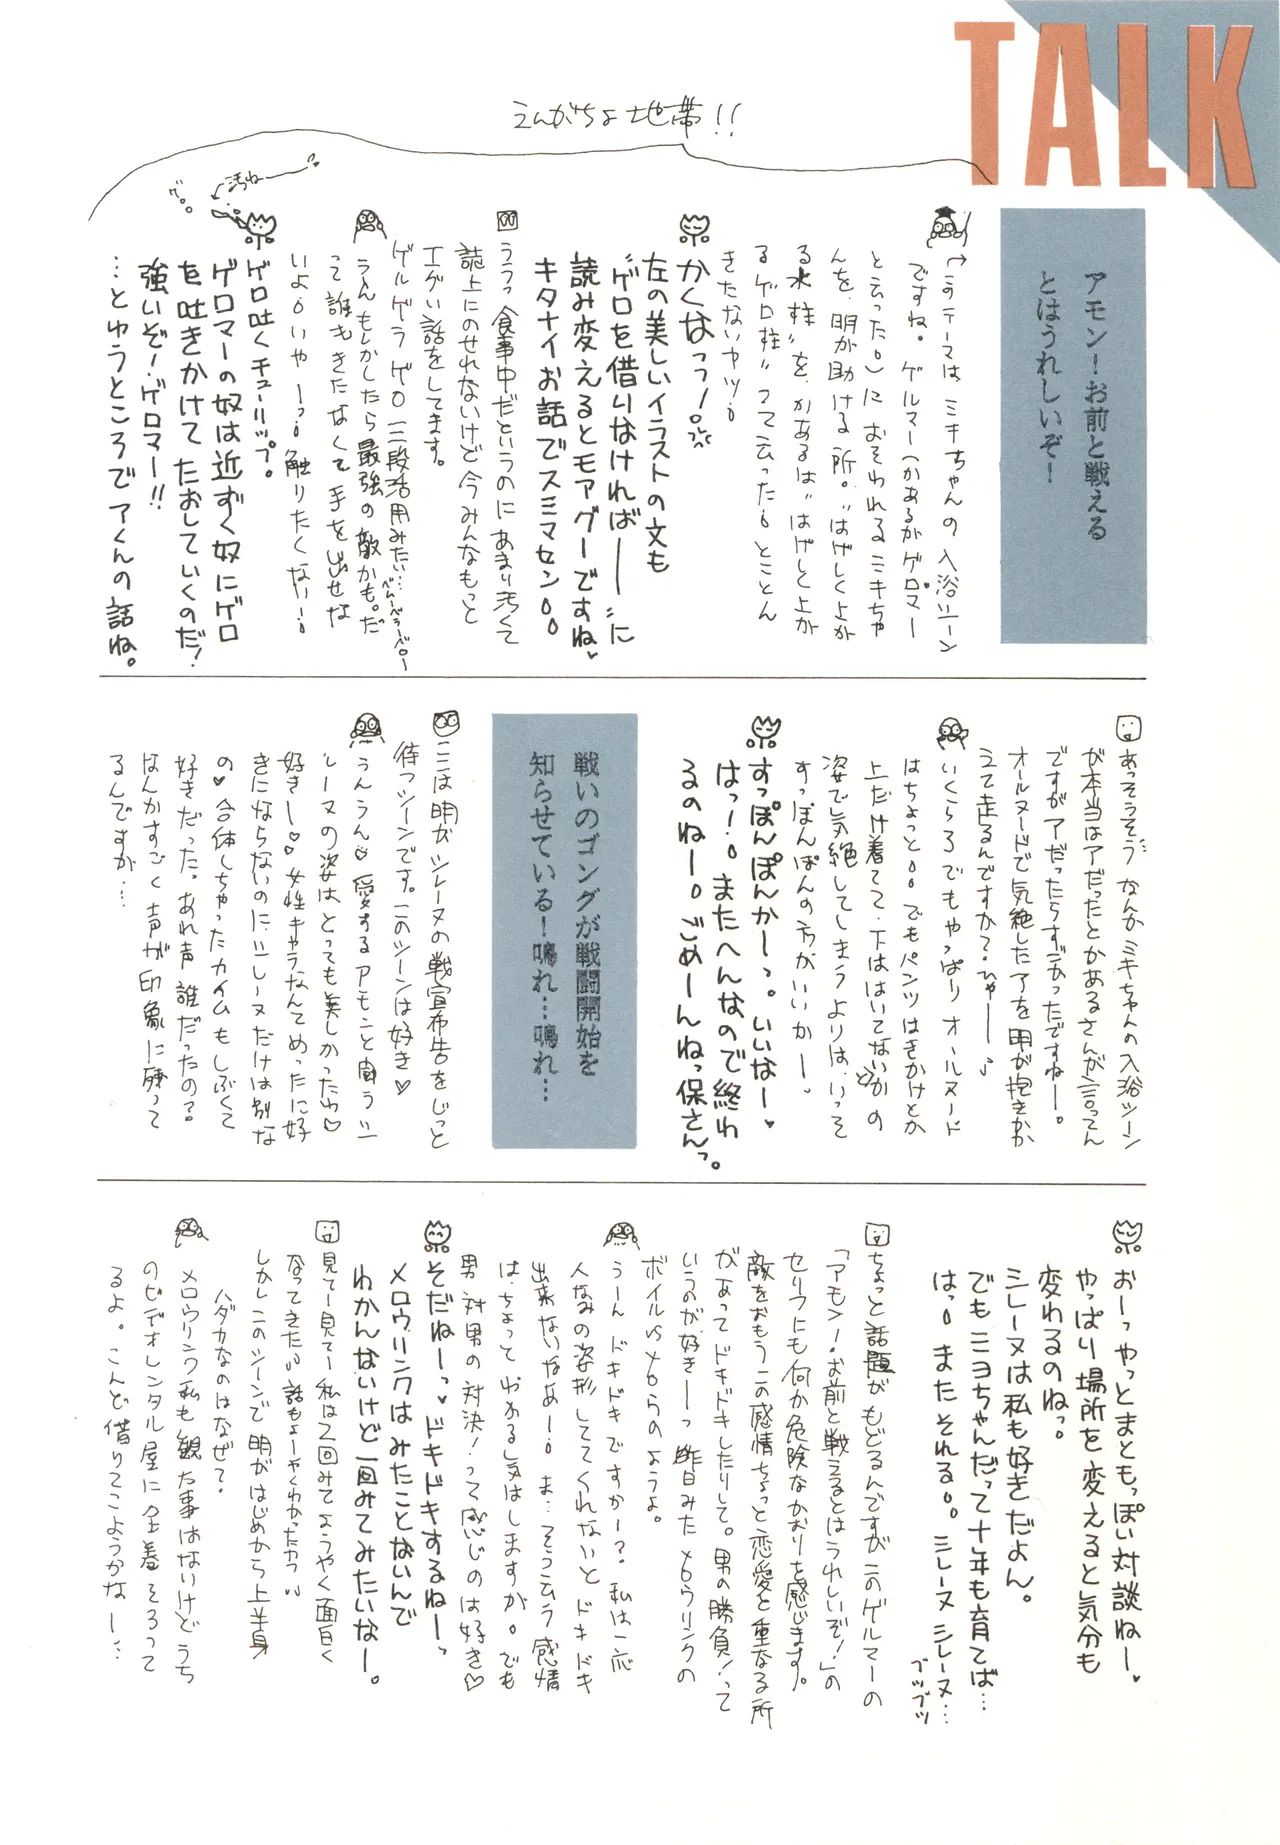 TALK
えんがちょ地帯!!
アモン!お前と戦える
とはうれしいぞ!
このテーマはミキちゃんの入浴シーン
ですね。ゲルマー(かあるがゲロマー
と云った。)におそわれるミキちゃ
んを、明が助ける所。"はげしく上が
る水柱"を、かあるは"はげしく上が
るゲロ柱"って云った。とことん
きたないヤツ。
かくなっっ!
左の美しいイラストの文も
"ゲロを借りなければ――"に
読み変えるとモアグーですね♥
キタナイお話でスミマセン。。
ううっ食事中だというのにあまり汚くて
誌上にのせれないけど今みんなもっと
エグい話をしてます。
ゲルゲラゲロ三段活用みたい…
ベムーベラーベロー
うんもしかしたら最強の敵かも。だ
って誰もきたなくて手を出せな
いよ。いやーっ。触りたくないー。
汚ね
ゲロ。。
ゲロ吐くチューリップ。
ゲロマーの奴は近ずく奴にゲロ
を吐きかけてたおしていくのだ!
強いぞ!ゲロマー!!
…とゆうところでアくんの話ね。
あっそうそうなんかミキちゃんの入浴シーン
が本当はアだったとかあるさんが言ってん
ですがアだったらすごかったですねー。
オールヌードで気絶したアを明が抱きかか
えて走るんですか?ひゃー――♪
いくらろでもやっぱりオールヌード
はちょっと。。でもパンツはきかけとか
上だけ着てて、下ははいてないかの
姿で気絶してしまうよりは、いっそ
すっぽんぽんの方がいいかー。
すっぽんぽんかーっ。いいなー♥
はっ!。またへんなので終わ
るのねー。ごめーんねっ保さんっ。
戦いのゴングが戦闘開始を
知らせている!鳴れ…鳴れ…
ここは明がシレーヌの戦宣布告をじっと
待つシーンです。このシーンは好き♥
うんうん♥愛するアモンと闘うシ
レーヌの姿はとっても美しかったわ♥
好きー♥♥女性キャラなんてめったに好
きにならないのに、シレーヌだけは別な
の♥合体しちゃったカイムもしぶくて
好きだった。あれ声誰だったの?
なんかすごく声が印象に残って
るんですが…
おーっやっとまともっぽい対談ねー♥
やっぱり場所を変えると気分も
変わるのねっ。
シレーヌは私も好きだよん。
でもミヨちゃんだって十年も育てば…
はっ。またそれる。。シレーヌシレーヌ…
ブツブツ
ちょっと話題がもどるんですがこのゲルマーの
「アモン!お前と戦えるとはうれしいぞ!」の
セリフにも何か危険なかおりを感じます。
敵をおもうこの感情ちょっと恋愛と重なる所
があってドキドキしたりして。男の勝負!って
いうのが好きーっ昨日みたメロウリンクの
ボイルvsメロウのようよ。
うーんドキドキですかー?。私は一応
人なみの姿形しててくれないとドキドキ
出来ないなあー。ま…そうゆう感情
は、ちょってわかる気はしますが。でも
男対男の対決!って感じのは好き♡
そだねーっ♥ドキドキするねーっ
メロウリンクはみたことないんで
わかんないけど一回みてみたいなー。
見てー見てー私は2回みてようやく面白く
なってきたい話もよーやくわかったカっい
しかしこのシーンで明がはじめから上半身
ハダカなのはなぜ?
メロウリンク私も観た事はないけどうち
のビデオレンタル屋に全巻そろって
るよ。こんど借りてこようかなー…